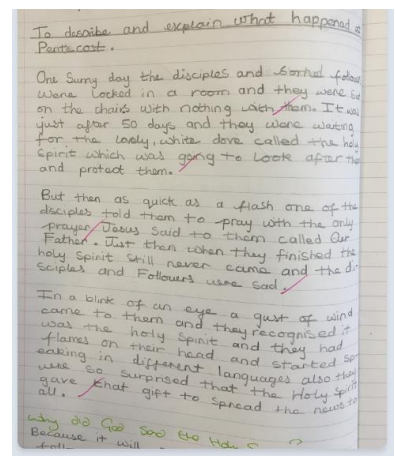 To describe and explain what happened at
Pentecost.
One Sunny day the disciples and follow
were locked in a room and they were sat
on the chairs with nothing with them. It was
just after 50 days and they were waiting
for the lovely, white dove called the holy
Spirit which was going to look after them
and protect them.
But then as quick as a flash one of the
disciples told them to pray with the only
prayer Jesus said to them called Our
Father. Just then when they finished the
holy Spirit still never came and the di-
sciples and Followers were sad.
In a blink of an eye a gust of wind
came to them and they recognised it
was the holy Spirit and they had
flames on their head and started sp
eaking in different languages also they
were so surprised that the Holy Spirit
gave that gift to spread the news to
all.
Why did God send the Holy S ?
Because it will